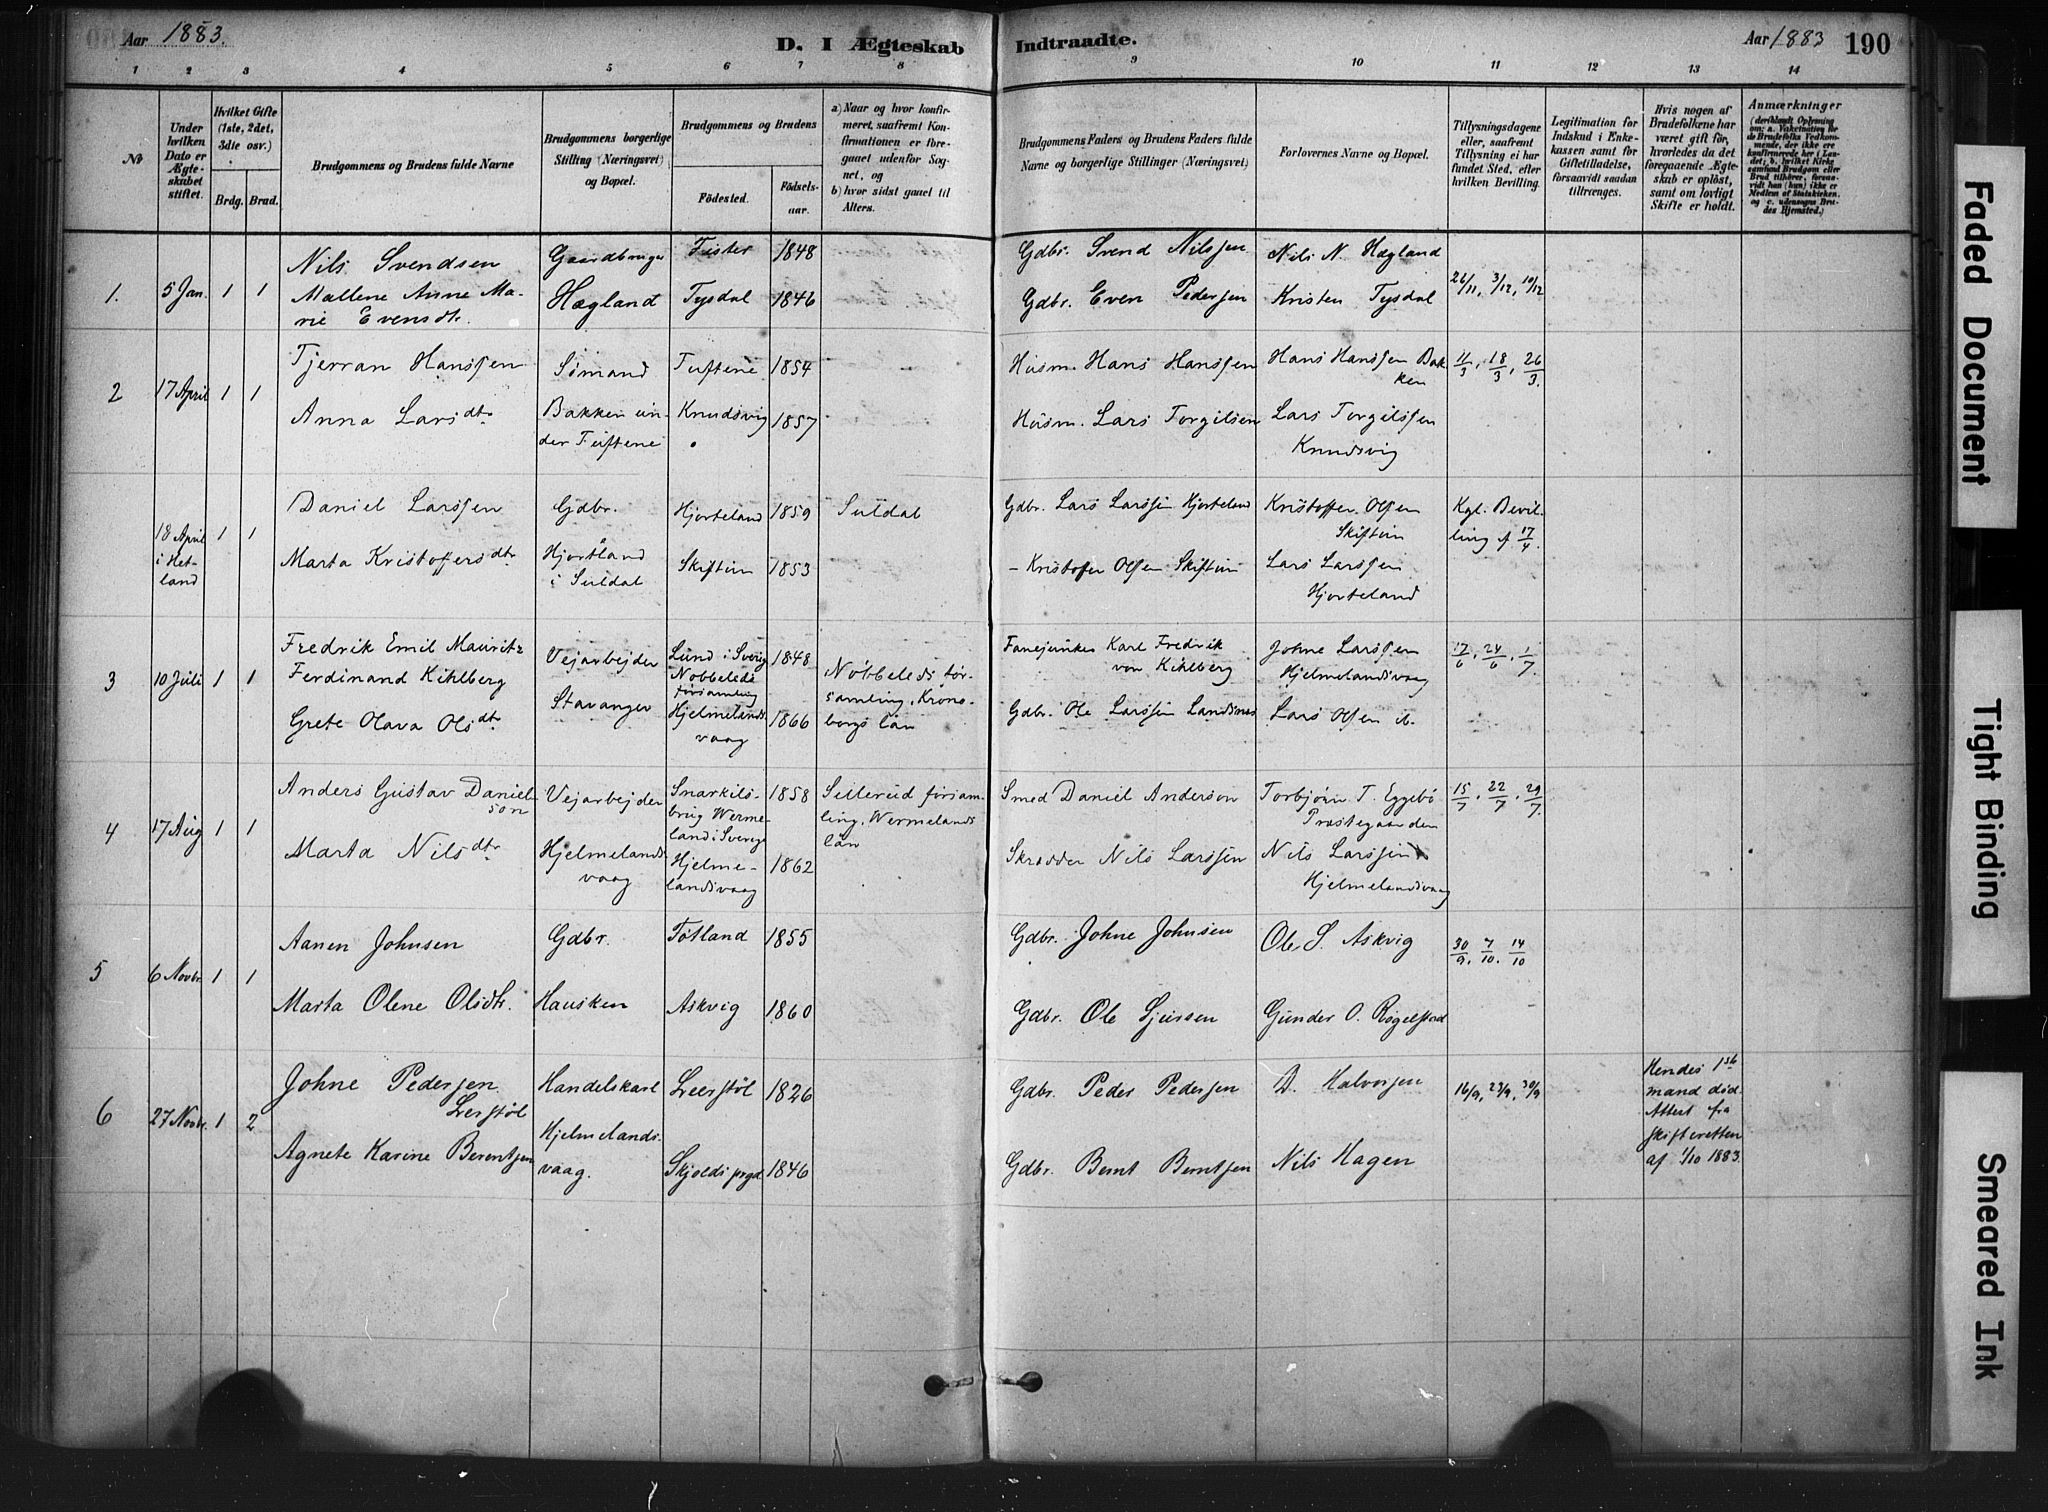 Aar 1883.
D. I Ægteskab
Indtraadte.
Aar 1883
190
1 2 3 4 5 6 7 8 9 10 11 12 13 14
No
Under hvilken Dato er Ægteskabet stiftet.
Hvilket Gifte (1ste, 2det, 3die osv.)
Brdg. Brud.
Brudgommens og Brudens fulde Navne
Brudgommens borgerlige Stilling (Næringsvei) og Bopæl.
Brudgommens og Brudens
Födested.
Födsels-aar.
a) Naar og hvor konfirmeret, saafremt Konfirmationen er foregaaet udenfor Sognet, og
b) hvor sidst gaaet til Alters.
Brudgommens Faders og Brudens Faders fulde Navne og borgerlige Stillinger (Næringsvei)
Forlovernes Navne og Bopæl.
Tillysningsdagene eller, saafremt Tillysning ei har fundet Sted, efter hvilken Bevilling.
Legitimation for Indskud i Enkekassen samt for Giftetilladelse, forsaavidt saadan tiltrænges.
Hvis nogen af Brudefolkene har været gift för, hvorledes da det foregaaende Ægteskab er oplöst, samt om lovligt Skifte er holdt.
Anmærkninger (deriblandt Oplysning om: a. Vaksination for de Brudefolks Vedkommende, der ikke ere konfirmerede her i Landet; b. hvilket Kirkesamfund Brudgom eller Brud tilhörer, forsaavidt han (hun) ikke er Medlem af Statskirken, og c. udensogns Brudes Hjemsted.)
1. 5 Jan. 1 1
Nils Svendsen
Mallene Anne Ma-
rie Evensdtr.
Gaardbruger
Hægland
Fister 1848
Tysdal 1846
Gdbr. Svend Nilssen
Gdbr. Even Pedersen
Nils N. Hægland
Kristen Tysdal
26/11, 3/12, 10/12
2 17 April 1 1
Tjerran Hanssen
Anna Larsdtr
Sømand
Bakken un-
der Tuftene
Tuftene 1854
Knudsvig 1857
Husm. Hans Hanssen
Husm. Lars Torgilsen
Hans Hanssen Bak-
ken
Lars Torgilssen
Knudsvig
11/3, 18/3, 26/3.
18 April
i Het-
land
1 1
Daniel Larssen
Marta Kristoffersdtr
Gdbr.
Hjortland
i Suldal
Hjorteland 1859
Skiftun 1853
Suldal
Gdbr. Lars Larssen Hjorteland
- Kristofer Olsen Skiftun
Kristoffer Olsen
Skiftun
Lars Larssen
Hjorteland
Kgl. Bevil-
ling af 17/4.
3 10 Juli 1 1
Fredrik Emil Mauritz
Ferdinand Kihlberg
Grete Olava Olsdtr
Vejarbejder
Stavanger
Lund i Sverig 1848
Nöbbeleds
församling
Hjelmelands-
vaag 1866
Nöbbeleds för-
samling, Krono-
borgs län
Fanejunker Karl Fredrik
von Kihlberg
Gdbr. Ole Larssen Landsnes
Johne Larssen
Hjelmelandsvaag
Lars Olsen ib.
17/6, 24/6, 1/7.
4 17 Aug 1 1
Anders Gustav Daniel-
son
Marta Nilsdtr
Vejarbejder
Hjelmelands-
vaag
Snarkils-
brug Werme-
land i Sverige
1858
Hjelme-
landsvaag
1862
Sillerud försam-
ling, Wermelands
län
Smed Daniel Anderson
Skrædder Nils Larssen
Torbjörn T. Eggebö
Præstegaarden
Nils Larssen
Hjelmelandsvaag
15/7, 22/7, 29/7.
5 6 Novbr. 1 1
Aanen Johnsen
Marta Olene Olsdtr.
Gdbr.
Hausken
Tötland 1855
Askvig 1860
Gdbr. Johne Johnsen
Gdbr. Ole Sjursen
Ole S. Askvig
Gunder O. Røgelstad
30/9, 7/10, 14/10
6 27 Novbr. 1 2
Johne Pedersen
Leerstöl
Agnete Karine Berentsen
Handelskarl
Hjelmelands-
vaag.
Leerstöl 1826
Skjolds prgd 1846
Gdbr. Peder Pedersen
Gdbr. Bernt Berntsen
D. Halvorsen
Nils Hagen
16/9, 23/9, 30/9
Hendes 1ste
mand död.
Attest fra
skifteretten
af 1/10 1883.
Faded Document
Tight Binding
Smeared Ink